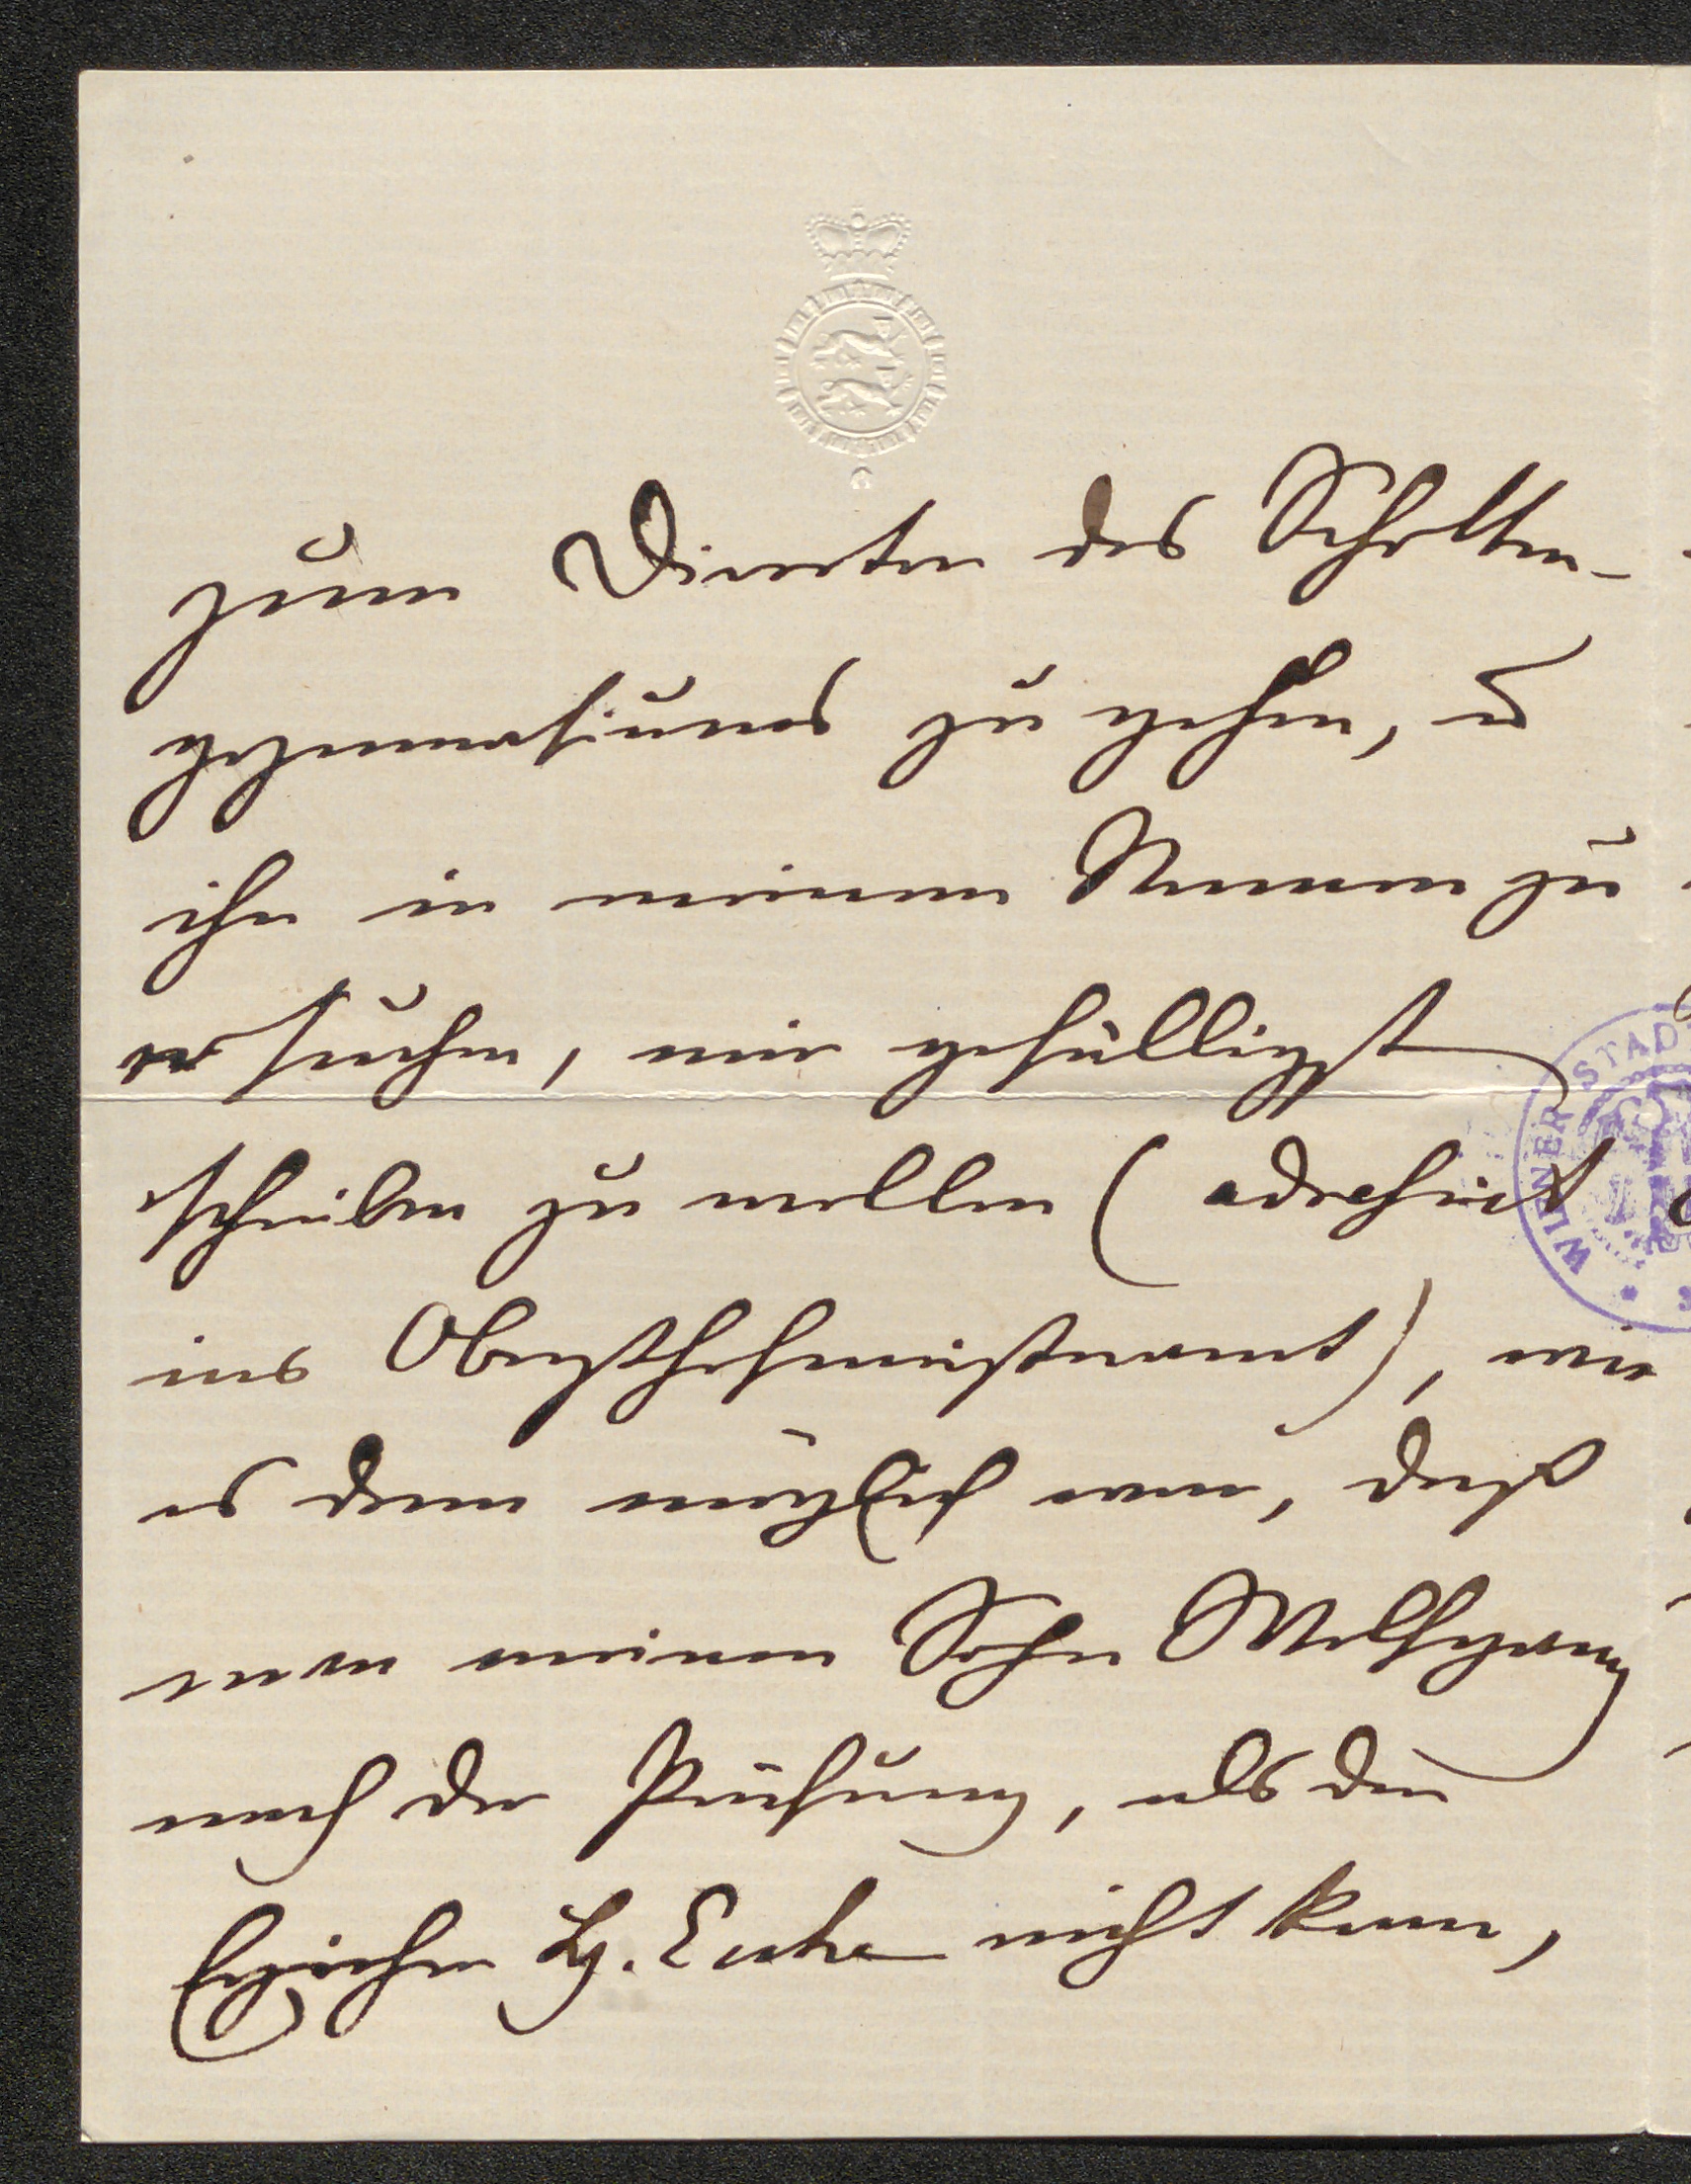 zum Director des Schotten-
gymnasiums zu gehen, u
ihn in meinem Namen zu
ersuchen, mir gefälligst
schreiben zu wollen (adressirt
ins Obersthofmeisteramt), wie
es denn möglich war, daß
man meinen Sohn Wolfgang
nach der Prüfung, als der
nicht kam,
WIENER STAD